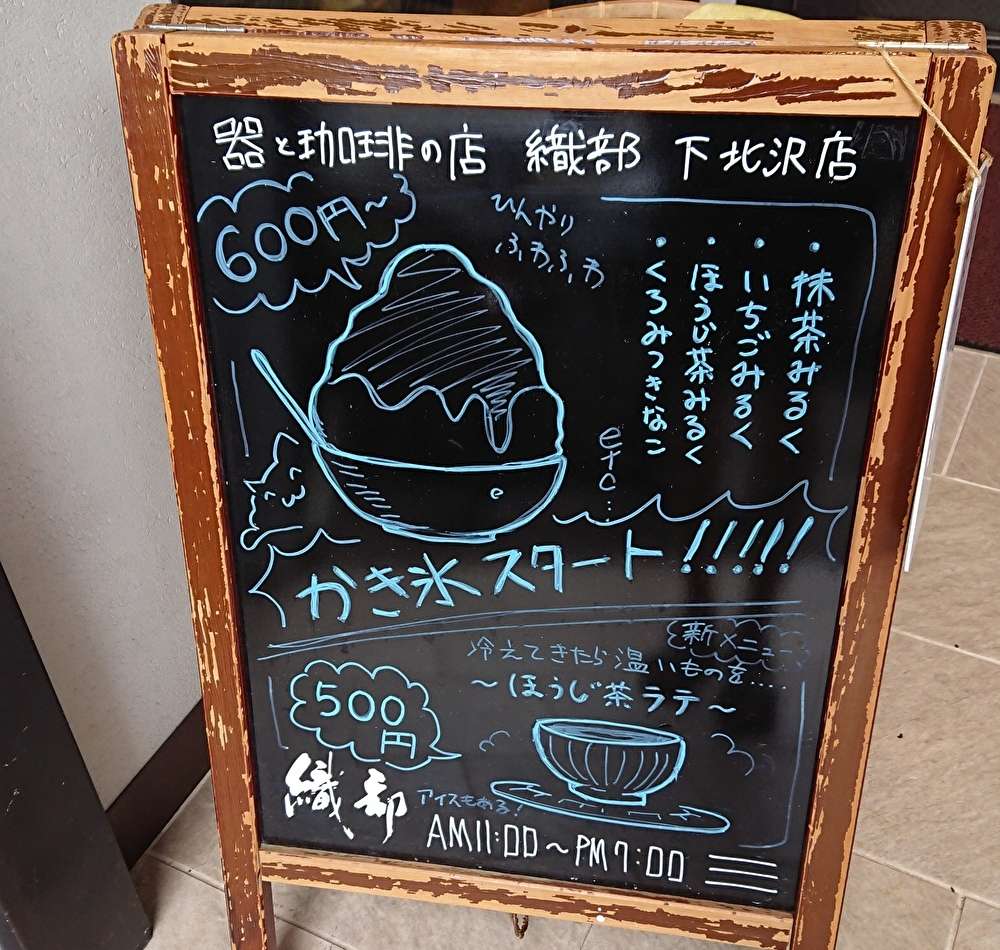 器と珈琲の店 織部 下北沢店
600円〜
ひんやり
ふわふわ
・抹茶みるく
・いちごみるく
・ほうじ茶みるく
・くろみつきなこ
etc...
かき氷スタート!!!!!
新メニュー
冷えてきたら温いものを.....
〜ほうじ茶ラテ〜
500円
織部
アイスもある!
AM11:00〜PM7:00